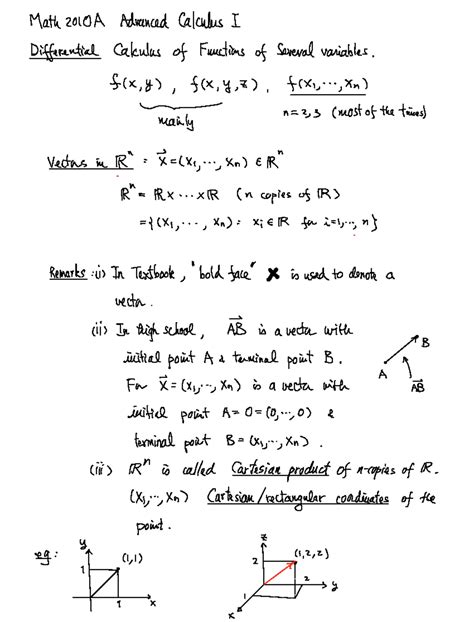 Math 2010A Advanced Calculus I
Differential Calculus of Functions of Several variables.
f(x,y), f(x,y,z), f(x₁,⋯,xₙ)
mainly
n=2,3 (most of the times)
Vectors in ℝⁿ : x⃗=(x₁,⋯,xₙ) ∈ ℝⁿ
ℝⁿ = ℝ×⋯×ℝ (n copies of ℝ)
={(x₁,⋯,xₙ): xᵢ∈ℝ for i=1,⋯,n}
Remarks: (i) In Textbook, "bold face" x is used to denote a
vector.
(ii) In high school, A⃗B⃗ is a vector with
initial point A & terminal point B.
For x⃗=(x₁,⋯,xₙ) is a vector with
initial point A=0=(0,⋯,0) &
terminal point B=(x₁,⋯,xₙ).
A
B
A⃗B⃗
(iii) ℝⁿ is called Cartesian product of n-copies of ℝ.
(x₁,⋯,xₙ) Cartesian/rectangular coordinates of the
point.
eg:
y
1
(1,1)
1
x
z
2
(1,2,2)
2
y
1
x